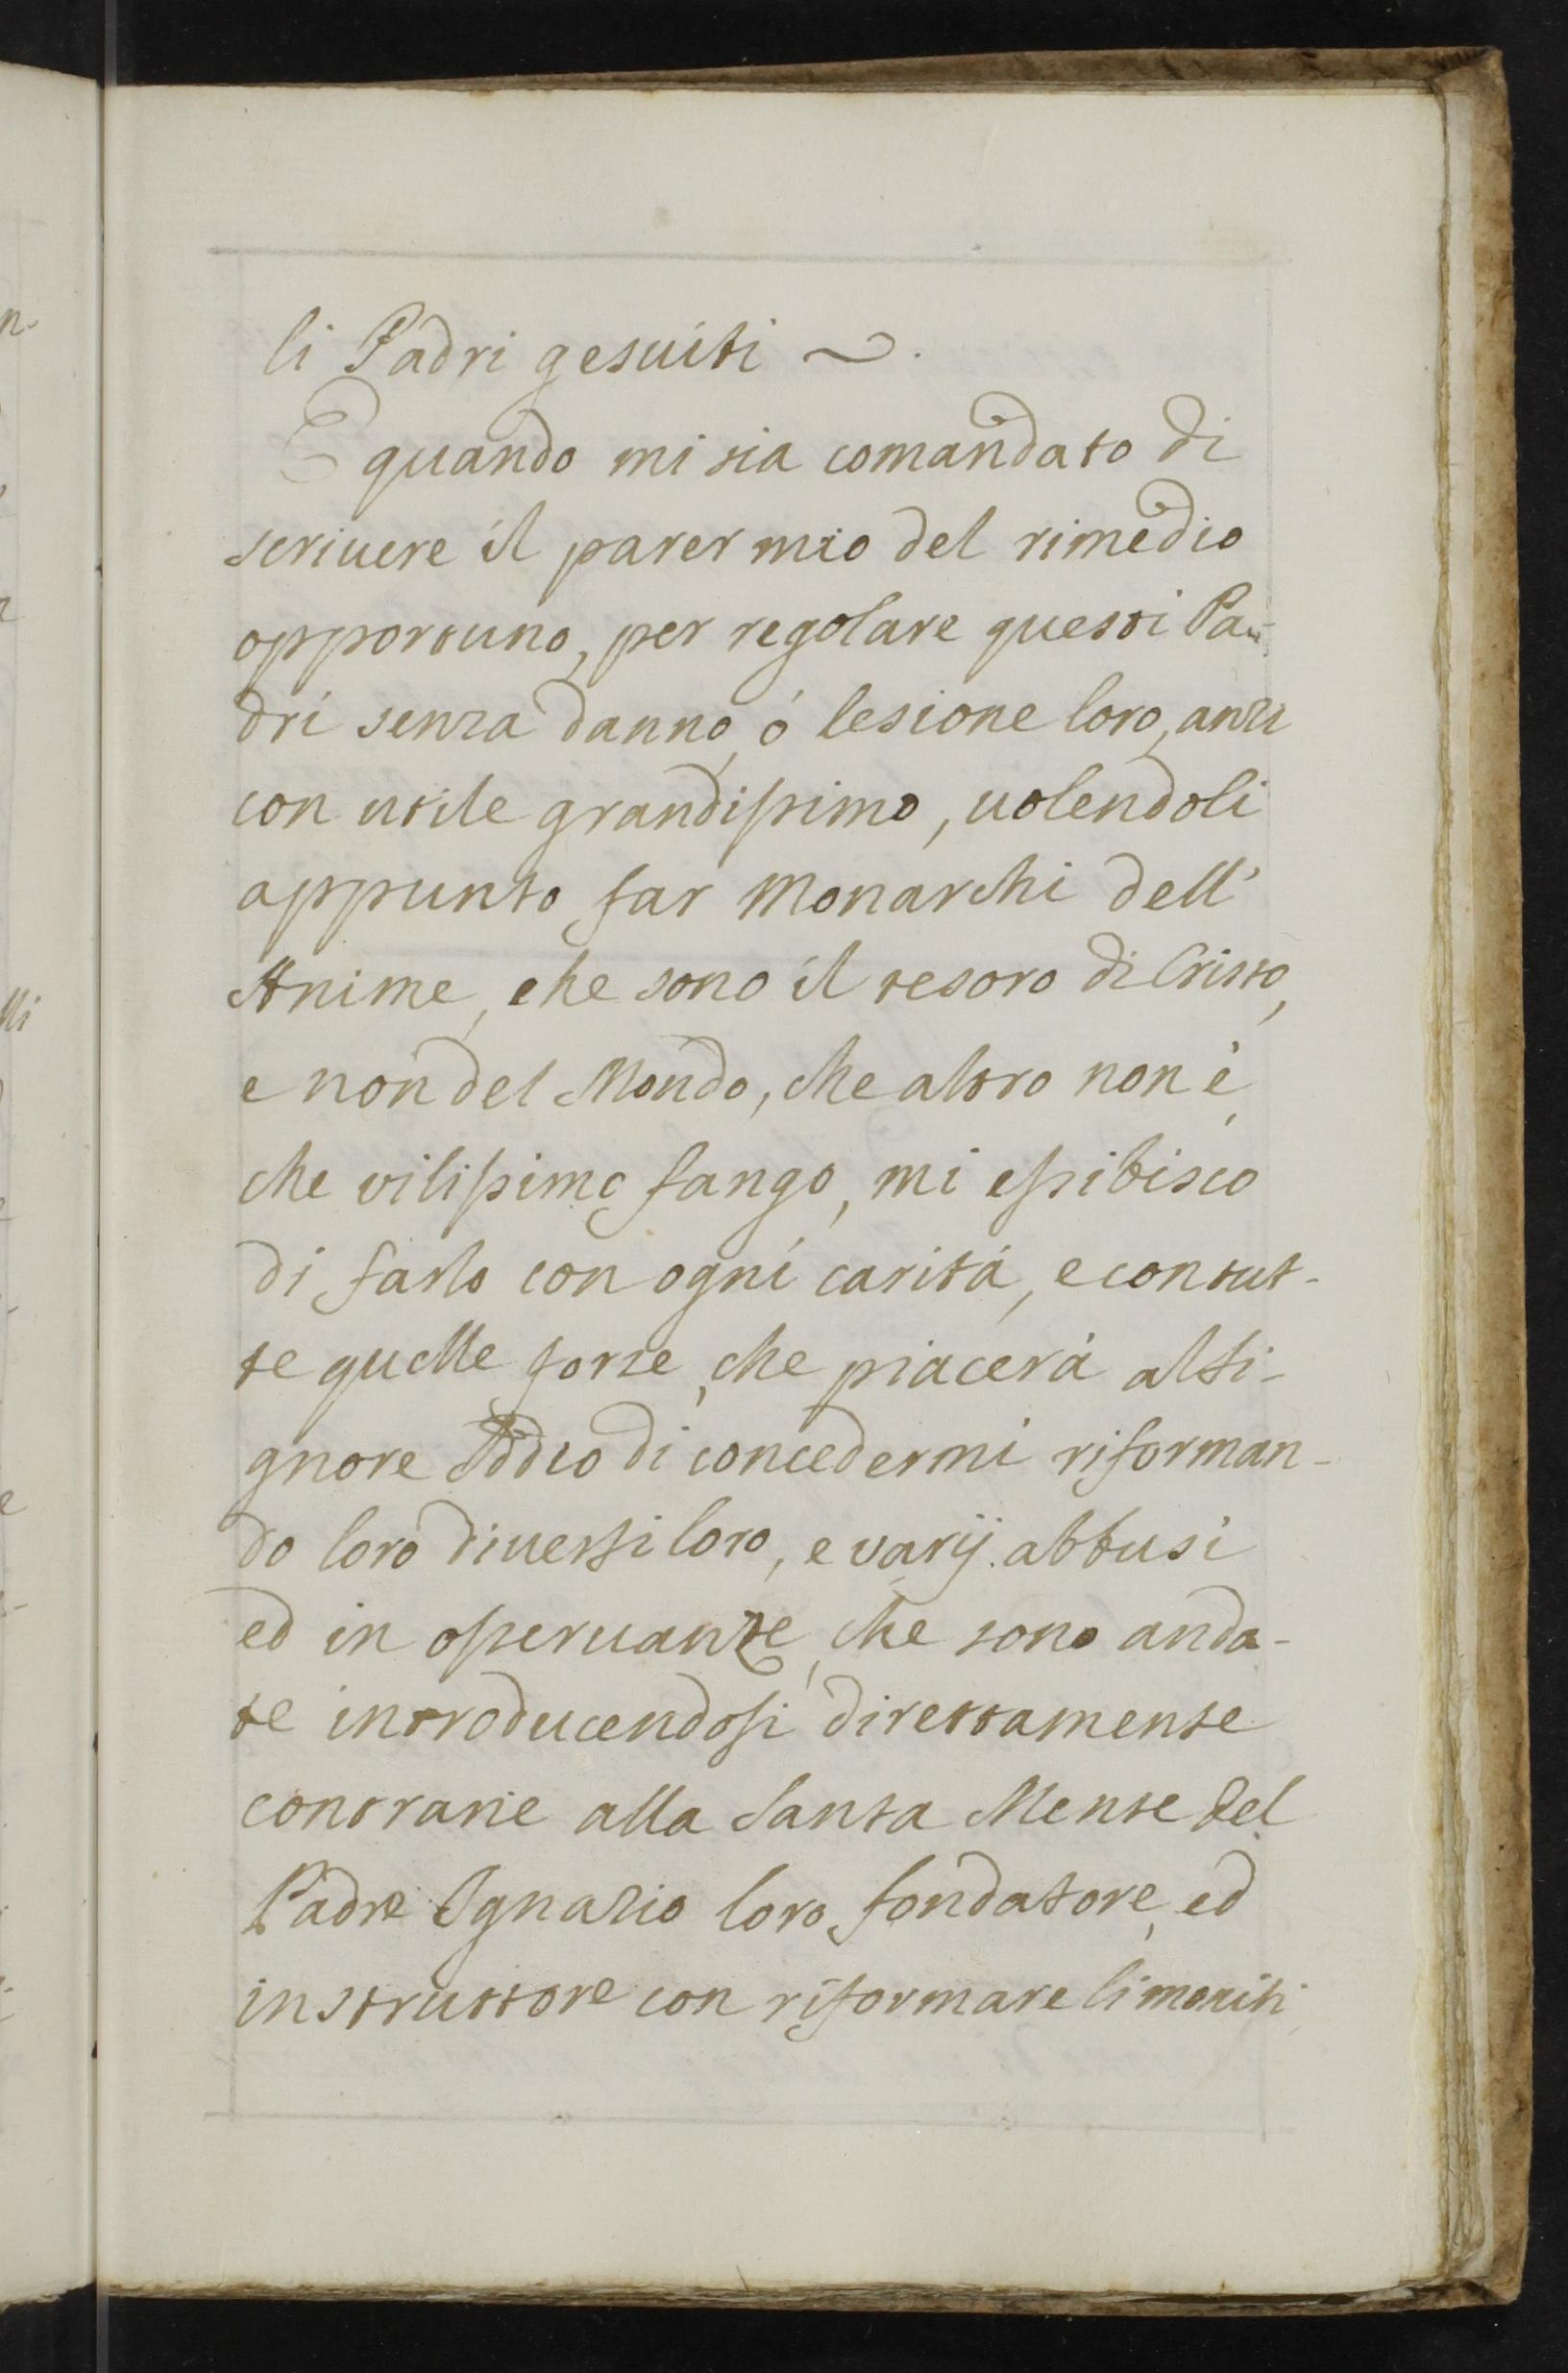 li Padri gesuiti ~.
E quando mi sia comandato di
scriuere il parer mio del rimedio
opportuno, per regolare questi Pa-
dri senza danno, ò lesione loro, anzi
con utile grandissimo, uolendoli
appunto far Monarchi dell'
Anime, che sono il tesoro di Cristo,
e non del Mondo, che altro non è,
che vilissimo fango, mi essibisco
di farlo con ogni carità, e con tut-
te quelle forze, che piacerà al Si-
gnore Iddio di concedermi riforman-
do loro diuersi loro, e varij abbusi
ed in osseruanze, che sono anda-
te introducendosi direttamente
contrarie alla Santa Mente del
Padre Ignazio loro fondatore, ed
instruttore con riformare li